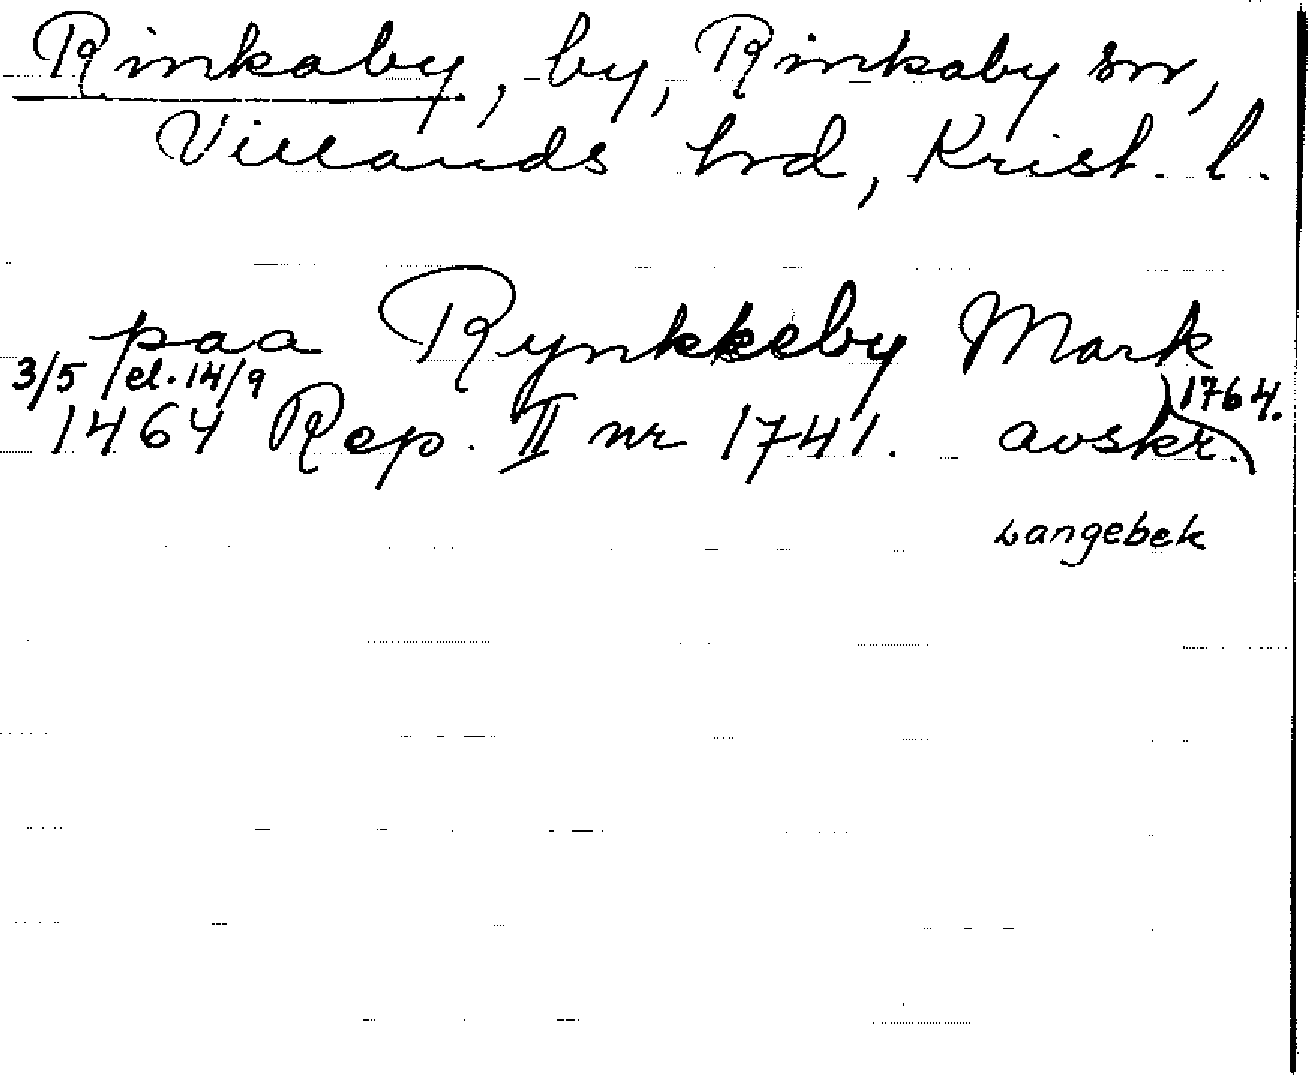 Rinkaby, by, Rinkaby sn,
Villands hrd, Krist. l.
paa Rynkkeby Mark
3/5 el. 14/9
1464 Rep. II nr 1741. avskr. 1764.
Langebek